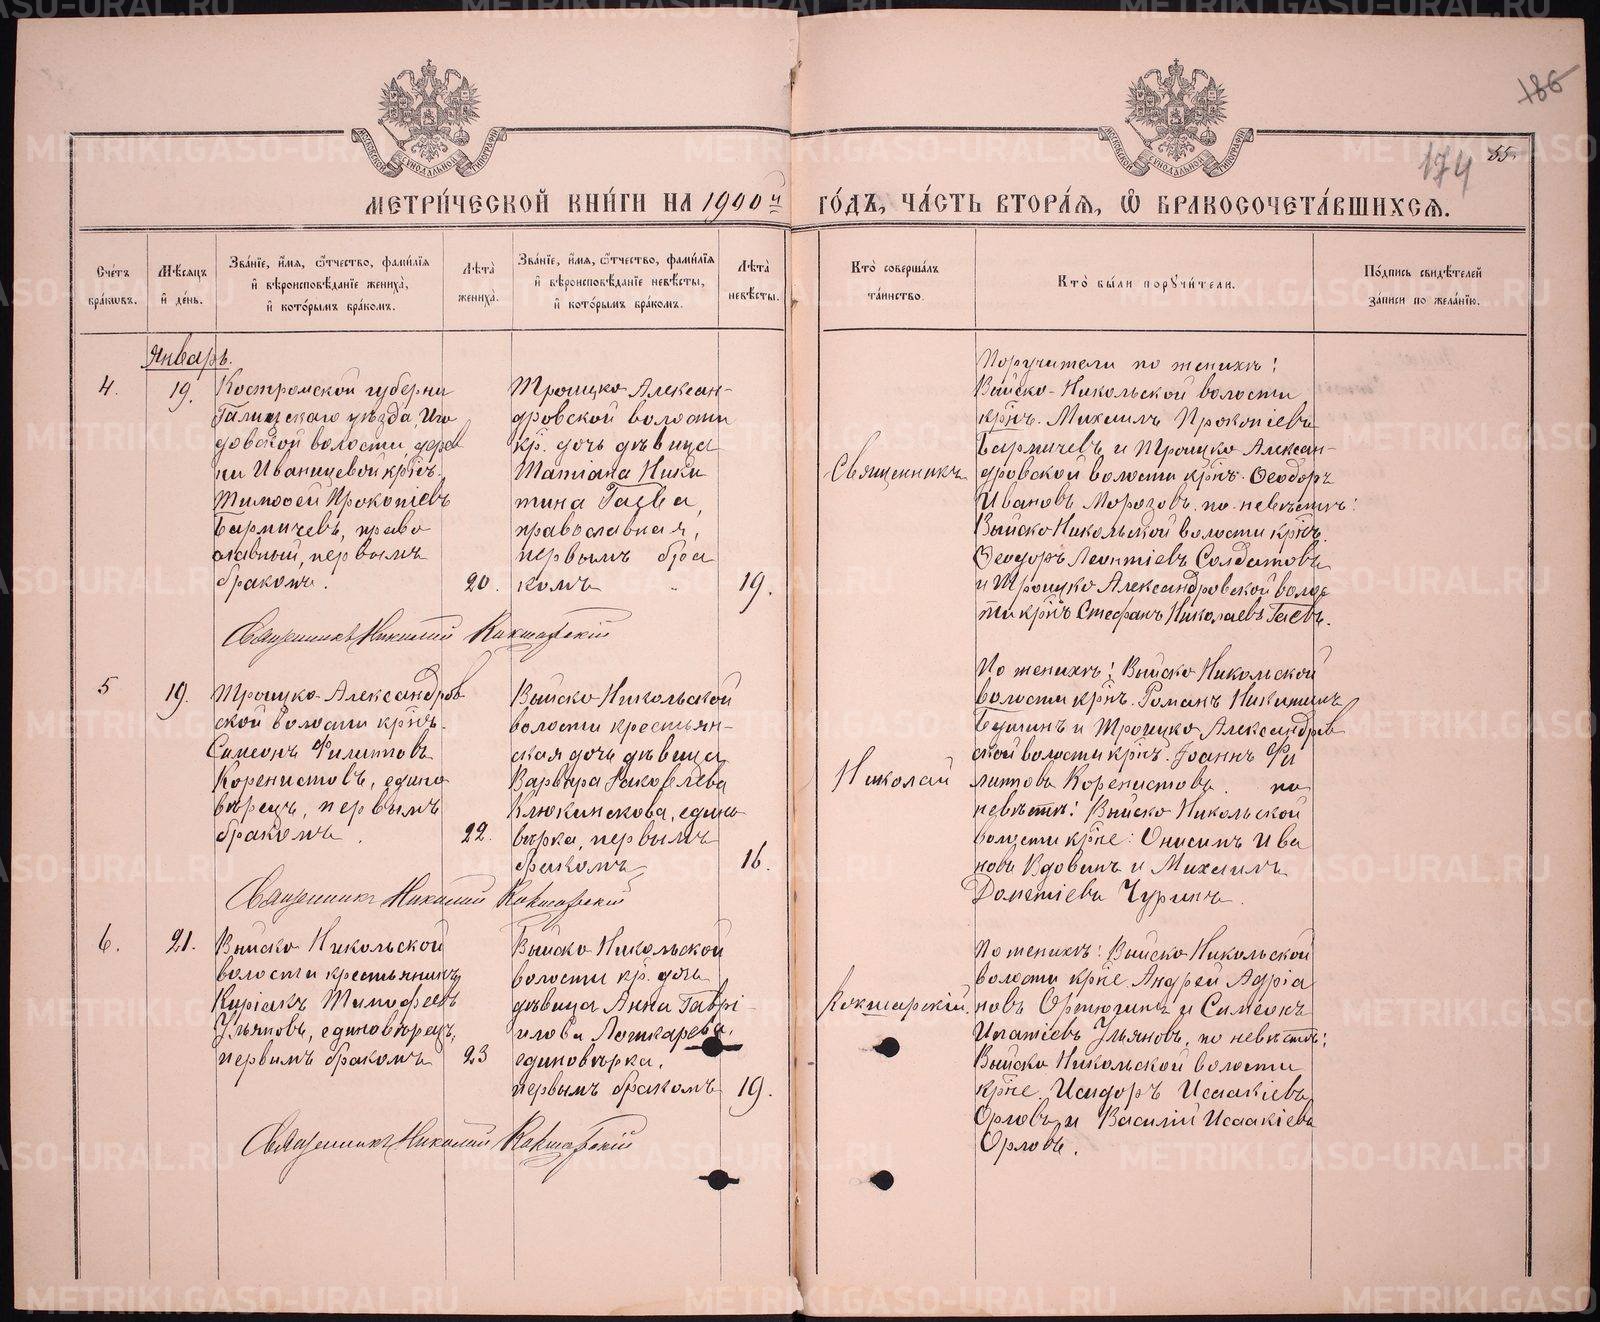 186
174
55.
МЕТРИ́ЧЕСКОЙ КНИ́ГИ НА 1900 й ГО́ДЪ, ЧА́СТЬ ВТОРА́Я, Ѿ БРАКОСОЧЕТА́ВШИХСЯ.
Сче́тъ бра́ковъ.
Мѣ́сяцъ и҆ де́нь.
Зва́нїе, и҆́мя, ѻ҆́тчество, фами́лїя
и҆ вѣроисповѣ́данїе жениха̀,
и҆ кото́рымъ бра́комъ.
Лѣ́та жениха̀.
Зва́нїе, и҆́мя, ѻ҆́тчество, фами́лїя
и҆ вѣроисповѣ́данїе невѣ́сты,
и҆ кото́рымъ бра́комъ.
Лѣ́та невѣ́сты.
Кто̀ соверша́лъ та́инство.
Кто̀ бы́ли порꙋчи́тели.
По́дпись свидѣ́телей за́писи по жела́нїю.
Январь.
4.
19.
Костромской губерни
Галицскаго уѣзда, Иго
довской волости, дерев
ни Иванцевой кр҃нъ.
Тимоѳей Прокопіевъ
Бармичевъ, право
славный, первымъ
бракомъ.
20.
Троицко-Алексан-
дровской волости
кр. дочь дѣвица
Татіана Ники
тина Гаева,
православная,
первымъ бра
комъ
19.
Священникъ Николай Кокшарскій
Поручители по женихѣ:
Выйско-Никольской волости
кр҃нъ. Михаилъ Прокопіевъ
Бармичевъ и Троицко-Алексан-
дровской волости кр҃нъ. Ѳеодоръ
Ивановъ Морозовъ. по невѣстѣ:
Выйско Никольской волости кр҃нъ.
Ѳеодоръ Леонтіевъ Солдатовъ
и Троицко Александровской волос
ти кр҃нъ Стефанъ Николаевъ Гаевъ.
Священникъ
5
19.
Троицко-Александров
ской волости кр҃нъ.
Симеонъ Филипповъ
Коренистовъ, едино
вѣрецъ, первымъ
бракомъ.
22.
Выйско-Никольской
волости крестьян-
ская дочь дѣвица
Варвара Яковлева
Клюкинскова, едино
вѣрка, первымъ
бракомъ
16.
Священникъ Николай Кокшарскій
Николай
По женихѣ: Выйско Никольской
волости кр҃нъ. Романъ Никитинъ
и Троицко Александров
ской волости кр҃нъ. Іоаннъ Фи
липповъ Коренистовъ. по
невѣстѣ: Выйско Никольской
волости кр҃не: Онисимъ Ива
новъ Вдовинъ и Михаилъ
Дометіевъ Чуринъ.
6.
21.
Выйско Никольской
волости крестьянинъ
Киріакъ Тимофеевъ
Ульяновъ, единовѣрецъ,
первымъ бракомъ
23
Выйско Никольской
волости кр. дочь
дѣвица Анна Гаврі-
илова Ложкарева,
единовѣрка,
первымъ бракомъ
19.
Священникъ Николай Кокшарскій
Кокшарскій.
По женихѣ: Выйско Никольской
волости кр҃не Андрей Адріа
новъ Ортюгинъ и Симеонъ
Ипатіевъ Ульяновъ, по невѣстѣ:
Выйско Никольской волости
кр҃не Исидоръ Исаакіевъ
Орловъ и Василій Исаакіевъ
Орловъ.
METRIKI.GASO-URAL.RU